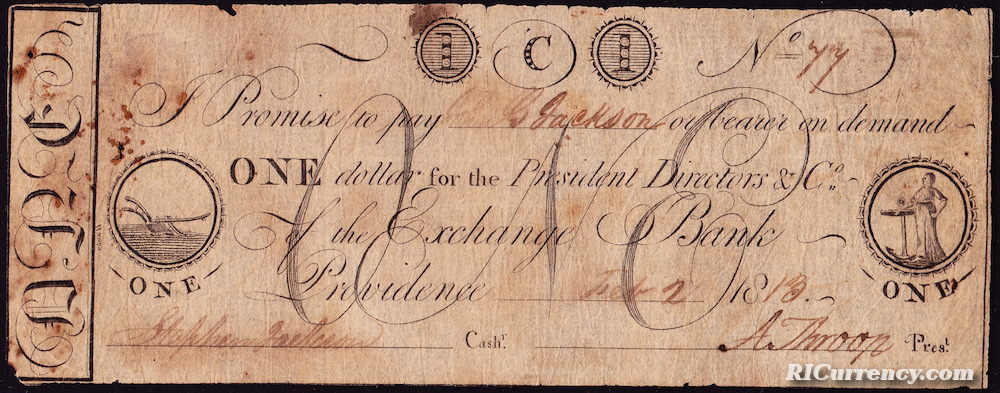 ONE
1 C 1
No 77
I Promise to pay G Jackson or bearer on demand
ONE dollar for the President Directors & Co.
of the Exchange Bank
Providence Feb 2 1813.
ONE
ONE
ONE
Stephen Jackson Cashr.
A. Throop Prest.
RICurrency.com